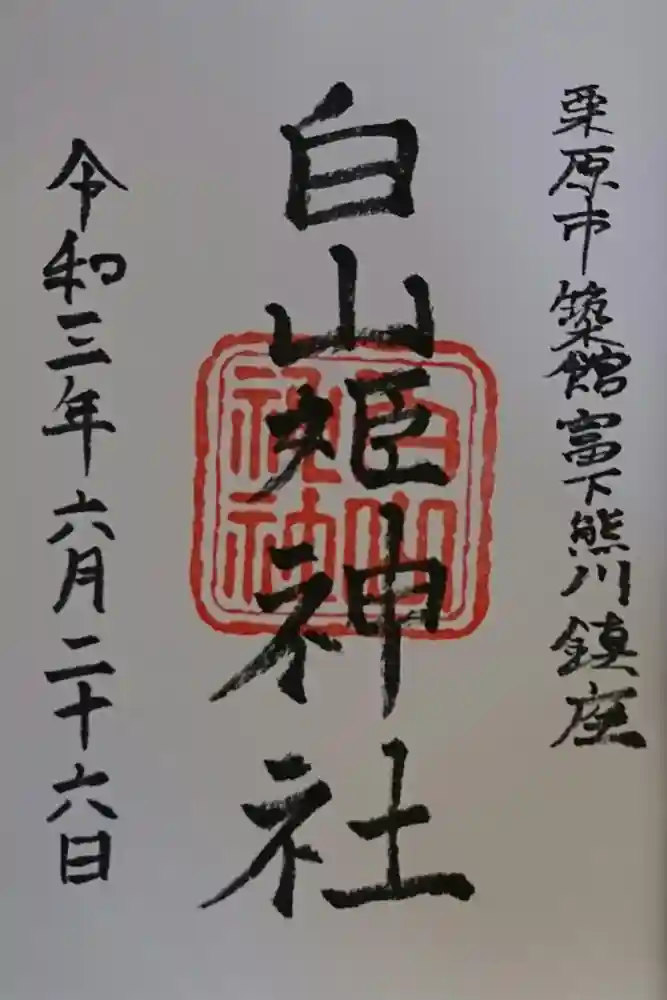 栗原市築館富下熊川鎮座
白山姫神社
令和三年六月二十六日